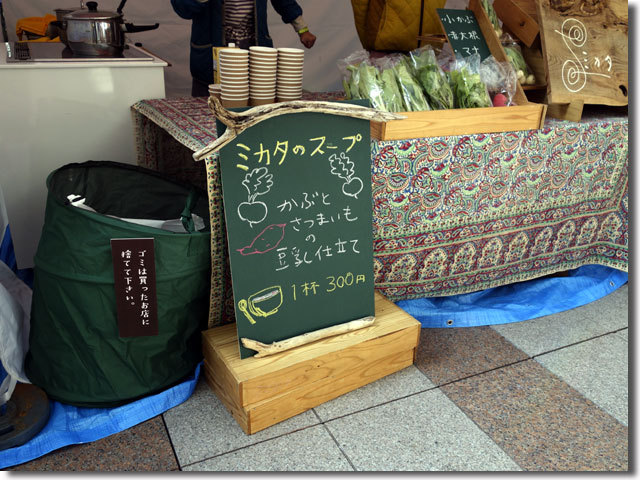 小かぶ
ミカタのスープ
かぶと
さつまいも
の
豆乳仕立て
1杯 300円
ゴミは買ったお店に
捨てて下さい。